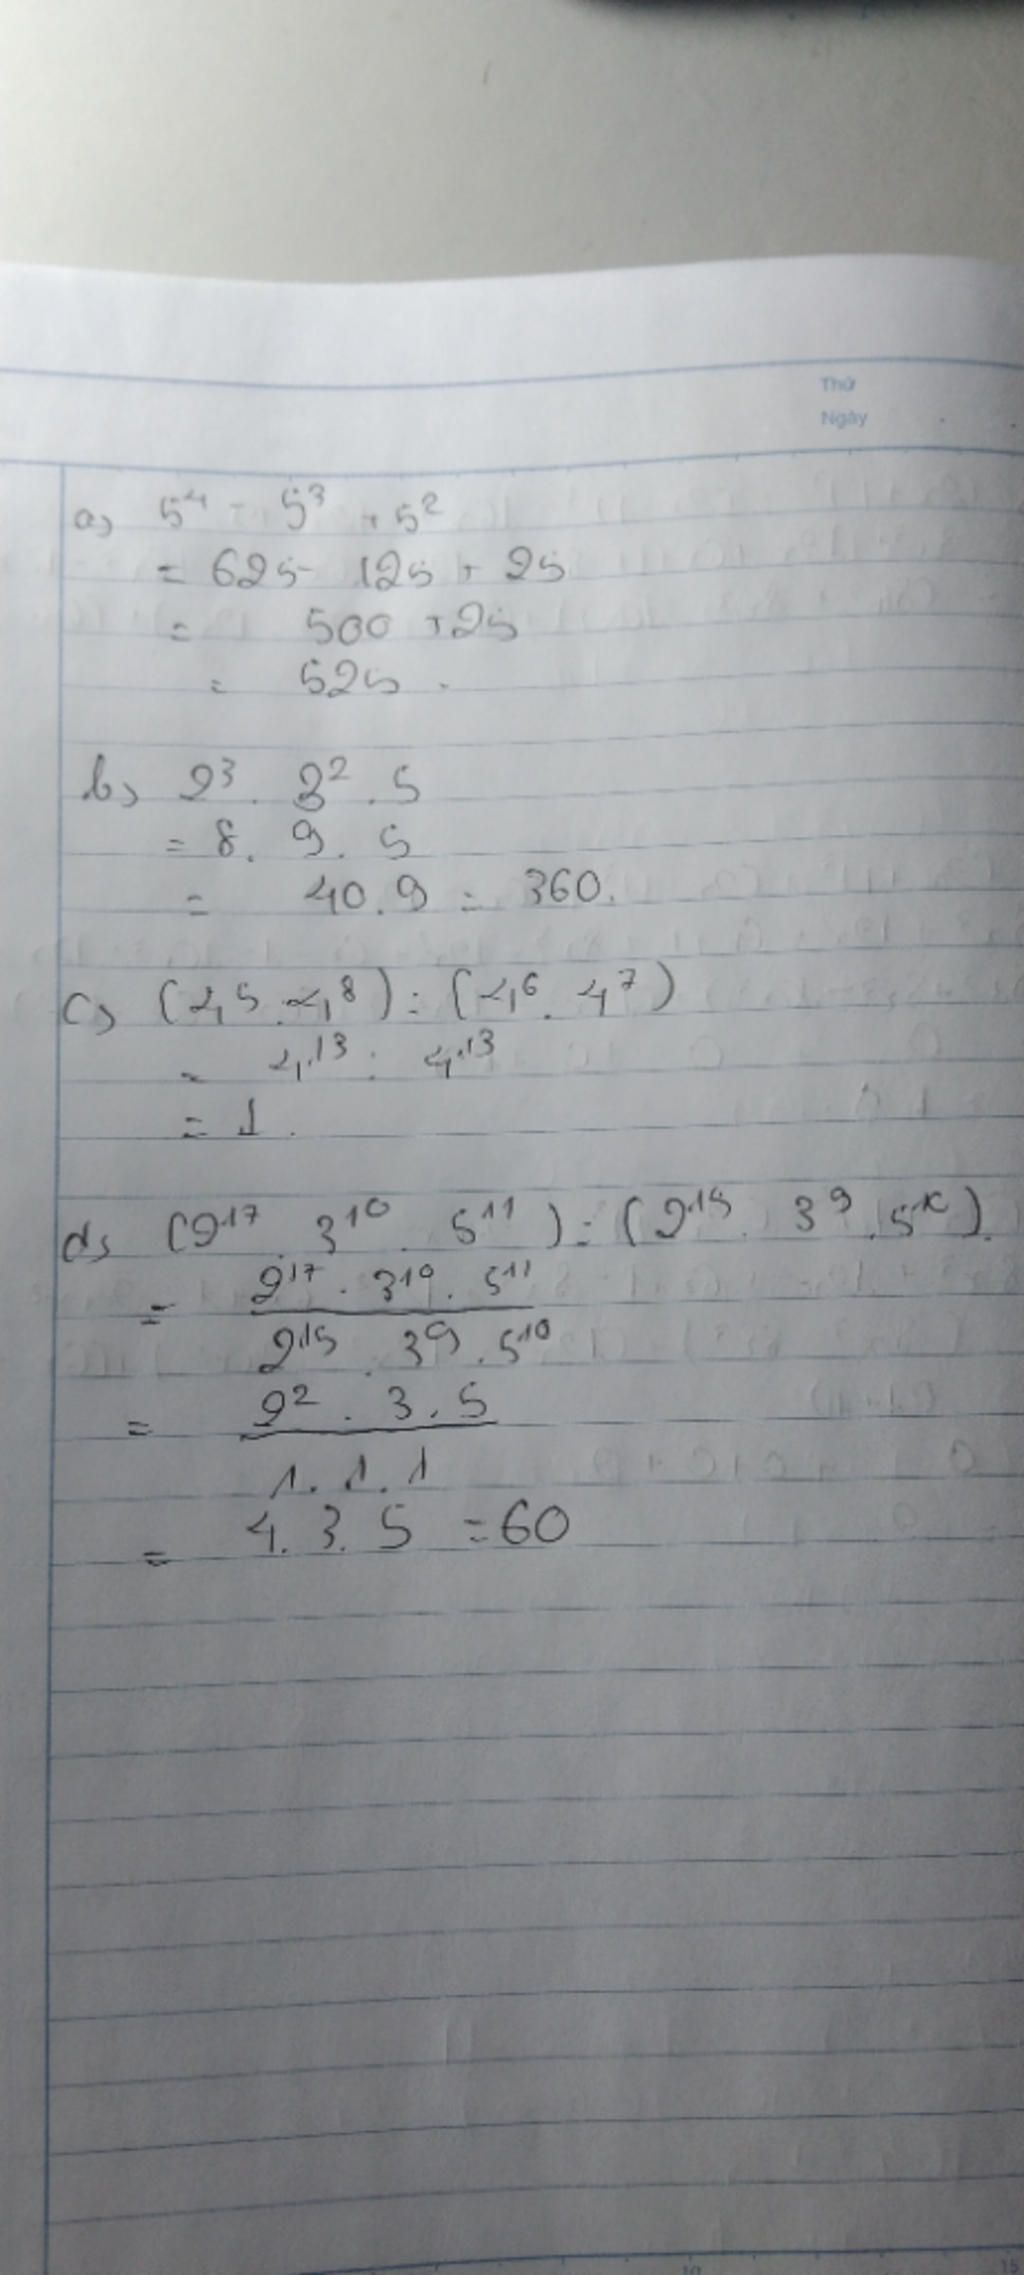 Thứ
Ngày
a) 5⁴ - 5³ + 5²
= 625 - 125 + 25
= 500 + 25
= 525.
b) 2³ . 3² . 5
= 8 . 9 . 5
= 40 . 9 = 360.
c) (4⁵ . 4⁸) : (4⁶ . 4⁷)
= 4¹³ : 4¹³
= 1.
d) (2¹⁷ . 3¹⁰ . 5¹¹) : (2¹⁵ . 3⁹ . 5¹⁰).
= 2¹⁷ . 3¹⁰ . 5¹¹
2¹⁵ . 3⁹ . 5¹⁰
= 2² . 3 . 5
1 . 1 . 1
= 4 . 3 . 5 = 60
10
15